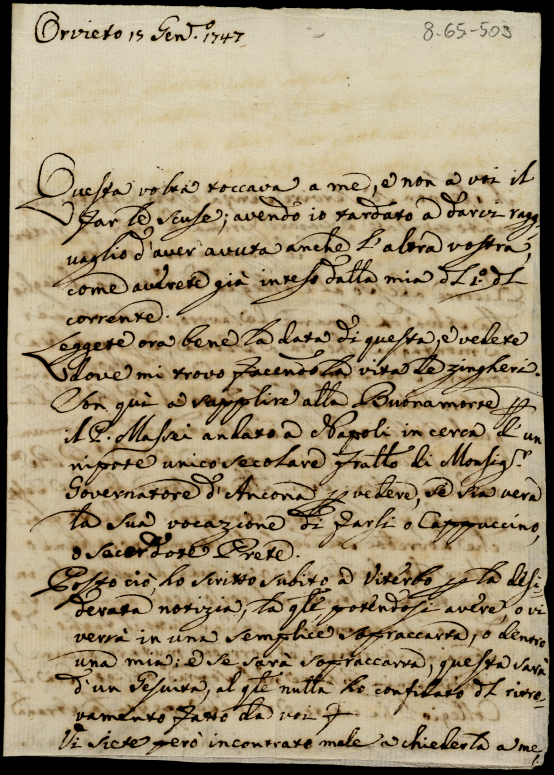 Orvieto 15 Gen.º 1747
8-65-503
Questa volta toccava a me, e non a voi il
far le scuse; avendo io tardato a darvi rag-
vaglio d'aver avuta anche l'altra vostra,
come avrete già inteso dalla mia dl 1.º dl
corrente.
Leggete ora bene la data di questa, e vedete
dove mi trovo facendo la vita de zingheri.
Son quì a supplire alla Buonamorte pp
il P. Massei andato a Napoli in cerca d'un
nipote unico secolare fratlo di Monsig.r
Governatore d'Ancona p vedere, se sia vera
la sua vocazione di farsi o Cappuccino,
o Secerdote Prete.
Posto ciò, ho scritto subito a Viterbo p la desi-
derata notizia, la qle, potendosi avere, o vi
verrà in una semplice sopraccarta, o dentro
una mia: e se sarà sopraccarta, questa sarà
d'un Gesuita, al qle nulla ho confidato dl ritro-
vamento fatto da voi
Vi siete però incontrato male a chiederla a me,